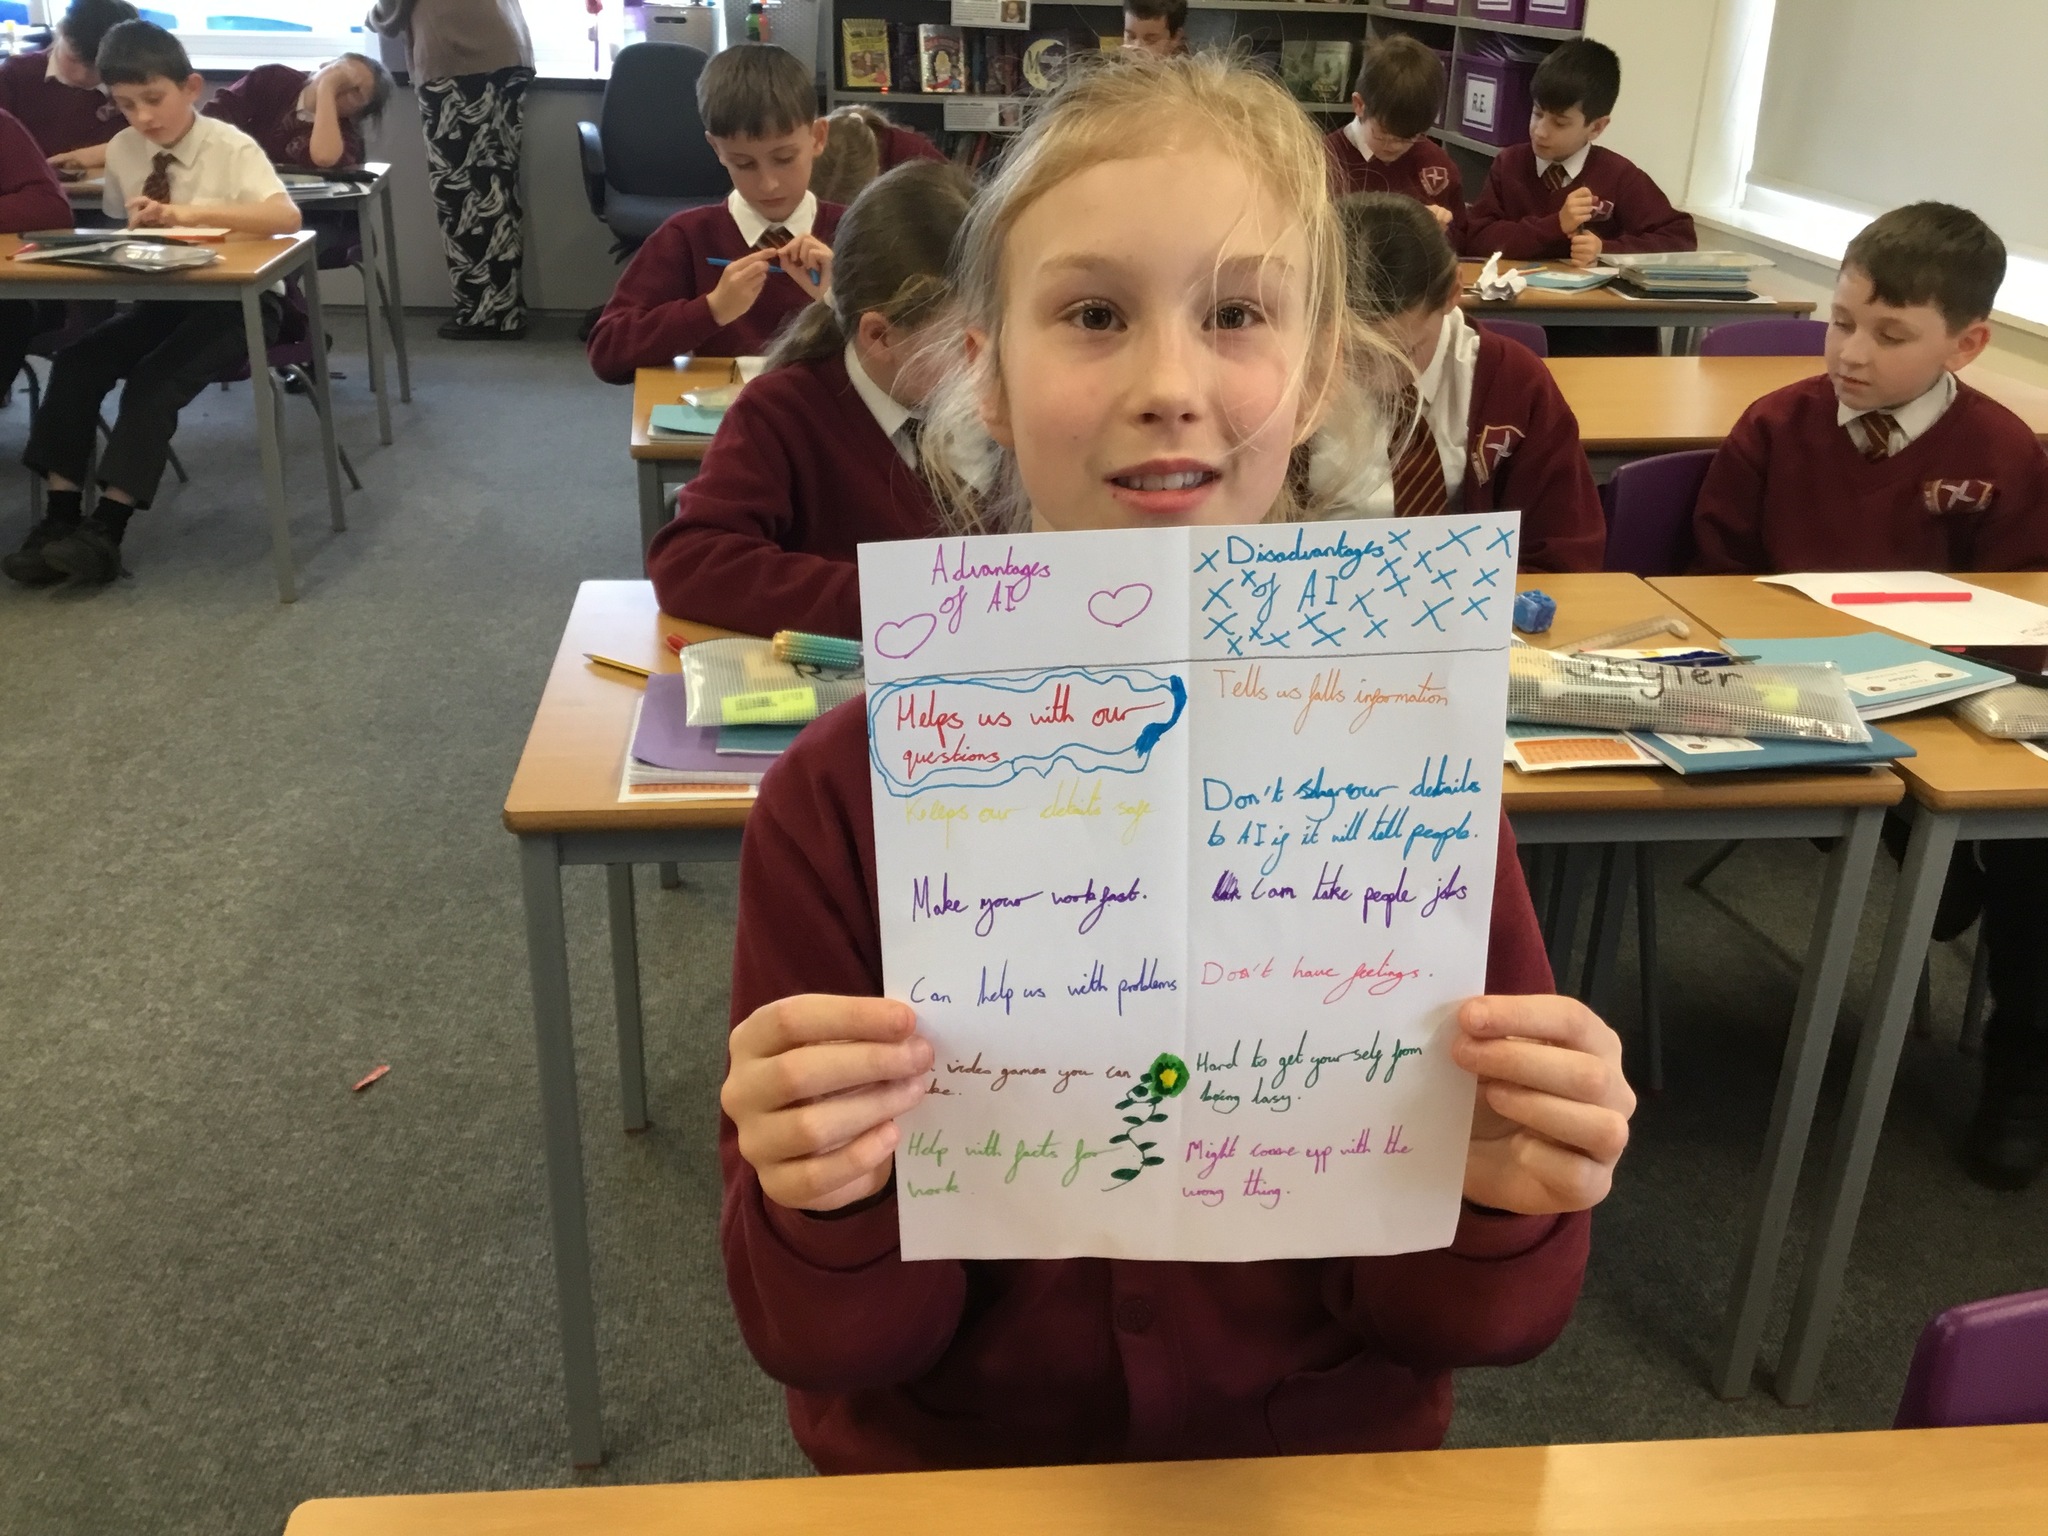 Advantages
of AI
Helps us with our
questions
Keeps our details safe
Make your work fast.
Can help us with problems
video games you can
Help with facts for
work.
Disadvantages
of AI
Tells us falls information
Don't our details
to AI if it will tell people.
Can take people jobs
Don't have feelings.
Hard to get your self from
being lasy.
Might come up with the
wrong thing.
R.E.
Skyler